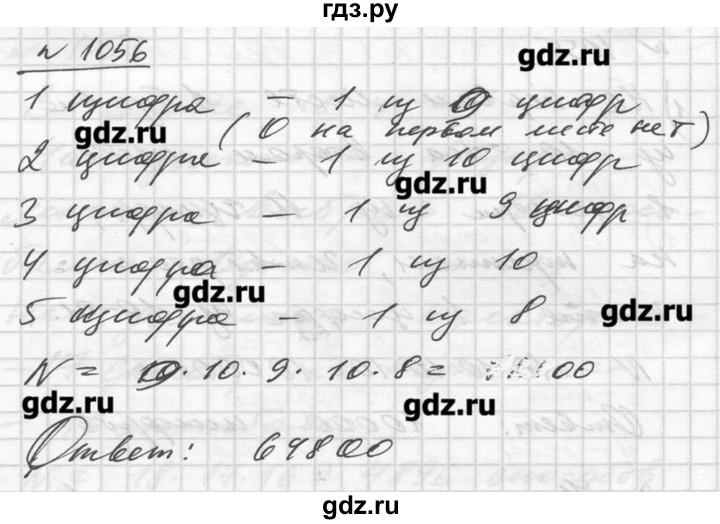 гдз.ру
N 1056
gdz.ru
1 цифра – 1 из 9 цифр
gdz.ru
(0 на первом месте нет)
2 цифра – 1 из 10 цифр
gdz.ru
3 цифра – 1 из 9 цифр
4 цифра – 1 из 10
gdz.ru
5 цифра – 1 из 8
gdz.ru
N = 9·10·9·10·8 = 00
gdz.ru
gdz.ru
Ответ: 64800
gdz.ru